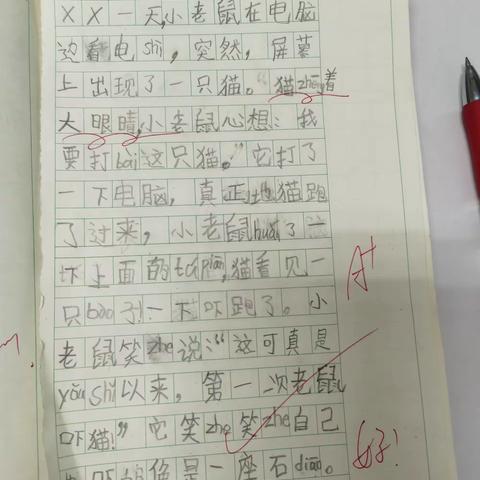 XX一天,小老鼠在电脑
边看电shì,突然,屏幕
上出现了一只猫。“猫zhēng着
大眼睛,小老鼠心想:我
要打bài这只猫。”它打了
一下电脑,真正地猫跑
了过来,小老鼠huá了一
下上面的tú piàn,猫看见一
只bào子!一下吓跑了。小
老鼠笑zhe说:“这可真是
yǒu shǐ以来,第一次老鼠
吓猫!”它笑zhe笑zhe自己
也吓的像是一座石diāo。
A+
好!